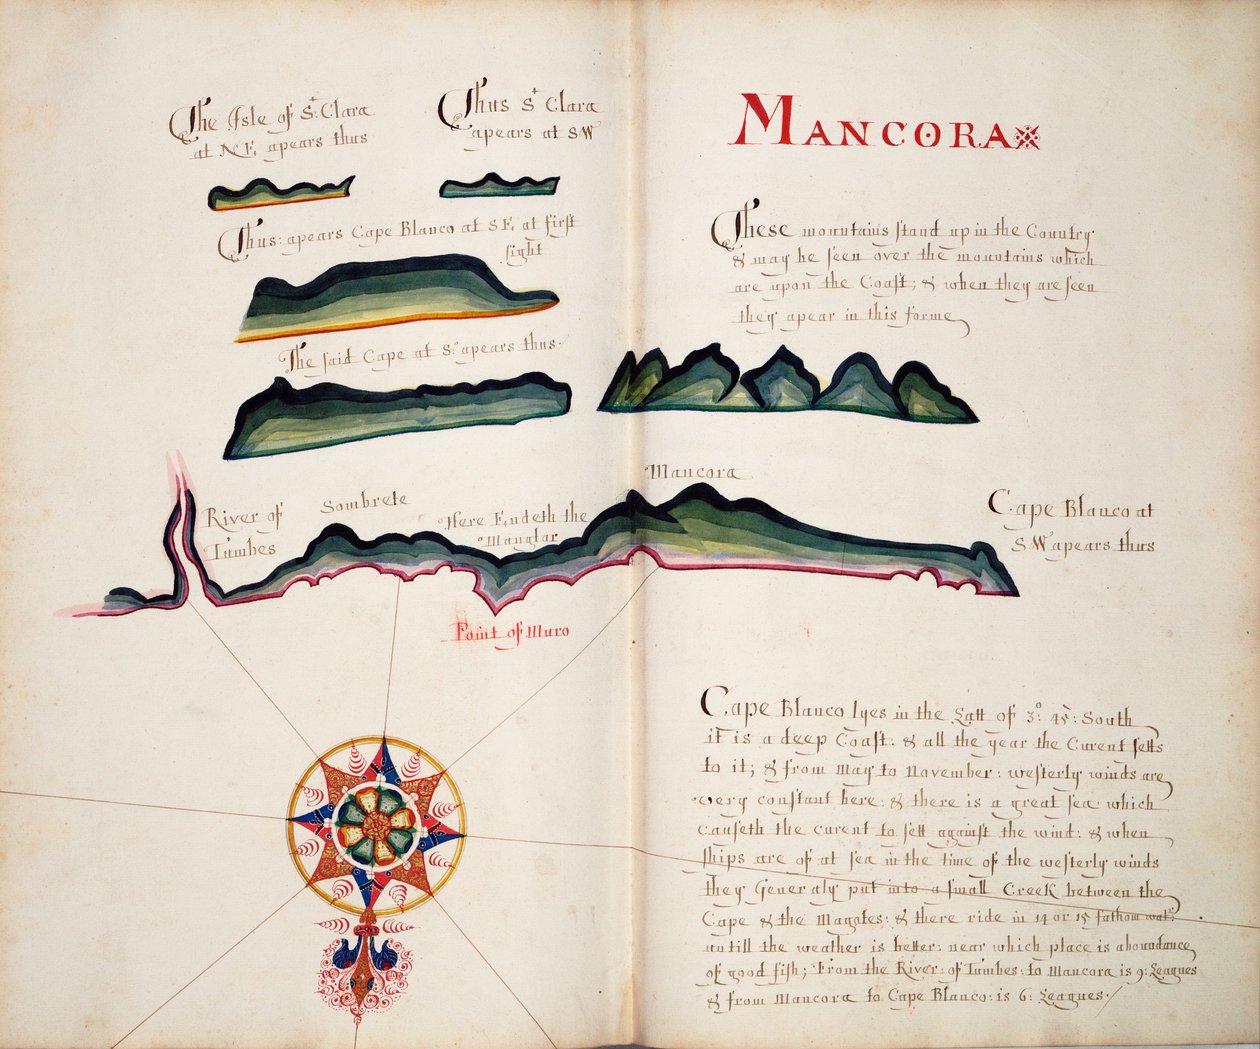 The Isle of St. Clara
at N E, apears thus
Thus St Clara
apears at SW
Thus: apears Cape Blanco at S E, at first
sight
The said Cape at S.o apears thus.
MANCORA
These mountains stand up in the Country
& may be seen over the mountains which
are upon the Coast; & when they are seen
they apear in this forme
River of
Tumbes
Sombrete
Here Endeth the
Manglar
Mancora
Cape Blanco at
SW apears thus
Point of Muro
Cape Blanco lyes in the Latt of 3°: 45': South
it is a deep Coast: & all the year the Curent setts
to it; & from May to November: westerly winds are
very constant here: & there is a great sea which
causeth the curent to sett against the wind: & when
ships are of at sea in the time of the westerly winds
they Generaly put into a small Creek between the
Cape & the Magotes: & there ride in 14 or 15 fathom watr:
untill the weather is better: near which place is aboundance
of good fish; From the River: of Tumbes: to Mancora is 9: Leagues
& from Mancora to Cape Blanco: is 6: Leagues.